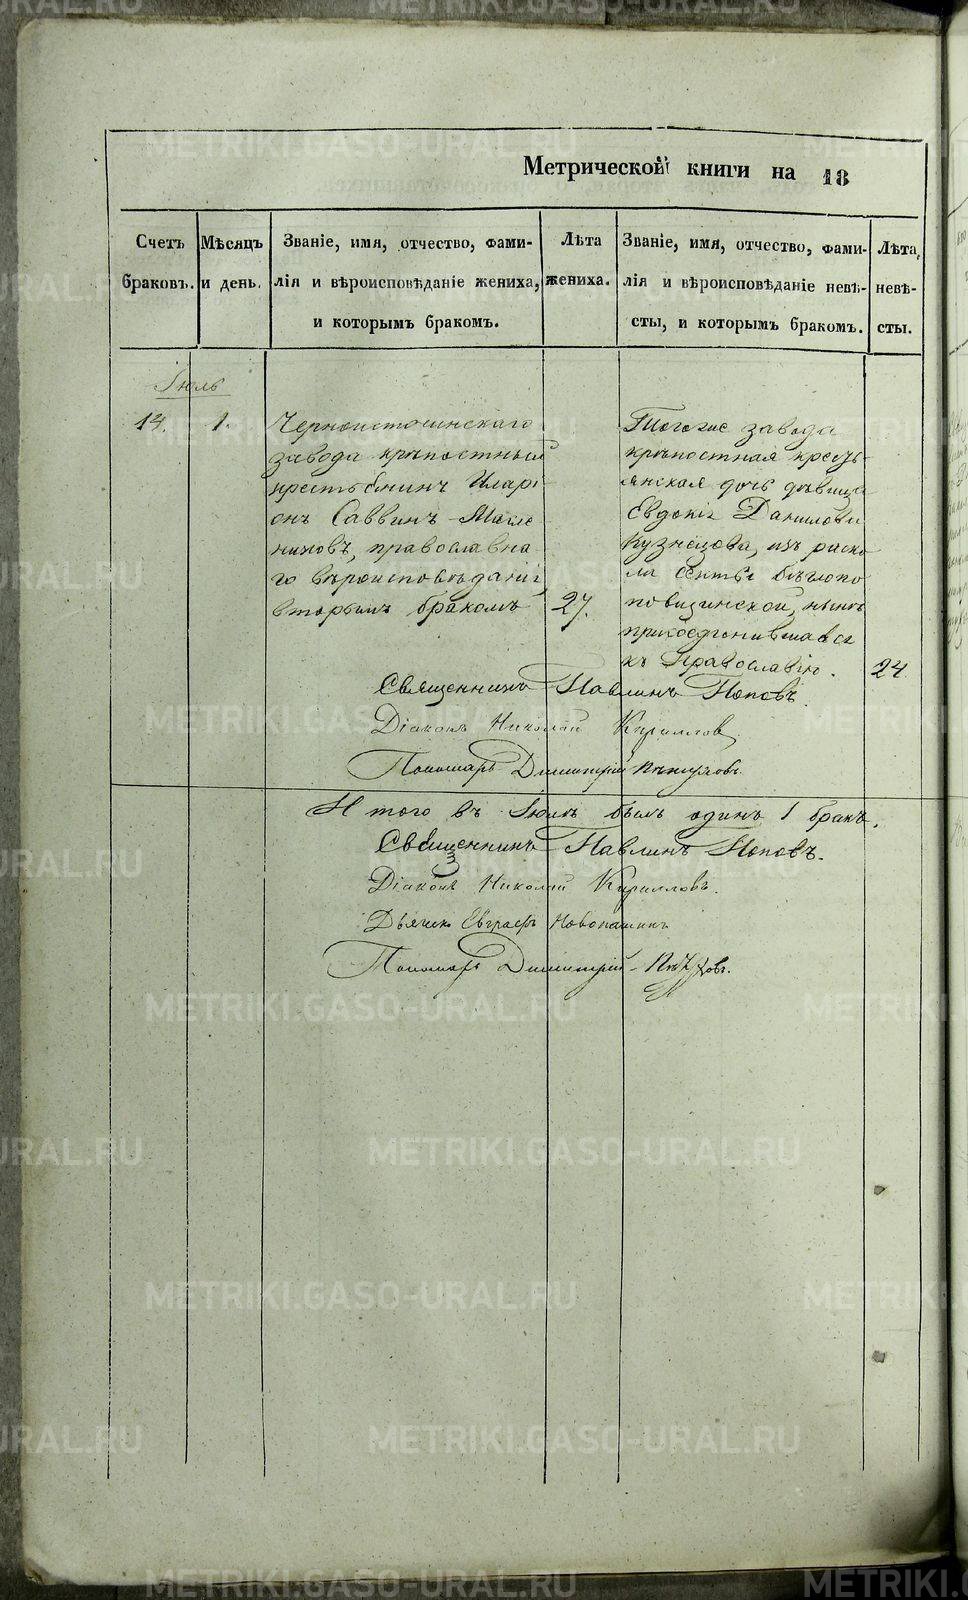 Метрической книги на 18
Счетъ браковъ.
Мѣсяцъ и день.
Званіе, имя, отчество, фами-
лія и вѣроисповѣданіе жениха,
и которымъ бракомъ.
Лѣта жениха.
Званіе, имя, отчество, фами-
лія и вѣроисповѣданіе невѣ-
сты, и которымъ бракомъ.
Лѣта, невѣ-
сты.
Іюль
14. 1.
Черноисточинскаго
завода крѣпостный
крестьянинъ Иларі
онъ Саввинъ
никовъ, православна
го вѣроисповѣданія,
вторымъ бракомъ
27.
Тогоже завода
крѣпостная кресть-
янская дочь дѣвица
Евдокія Данилова
Кузнецова, изъ раско
ла секты бѣглопо
повщинской, нынѣ
присоединившаяся
къ Православію.
24.
Священникъ Павлинъ Поповъ.
Діаконъ Николай Кирилловъ
Пономарь Димитрій
Итого въ Іюлѣ былъ одинъ 1 бракъ.
Священникъ Павлинъ Поповъ.
Діаконъ Николай Кирилловъ.
Дьячекъ Евграфъ Новопашинъ
Пономарь Димитрій
METRIKI.GASO-URAL.RU